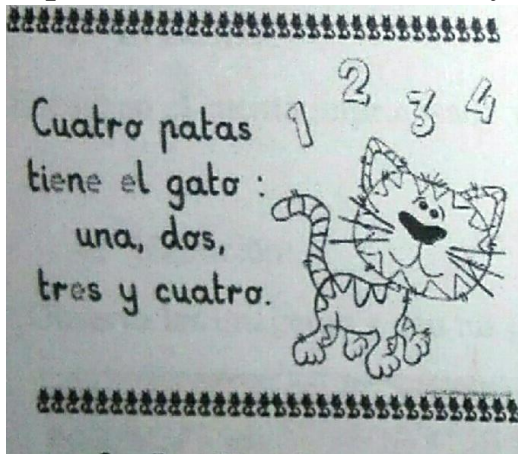 1 2 3 4
Cuatro patas
tiene el gato :
una, dos,
tres y cuatro.